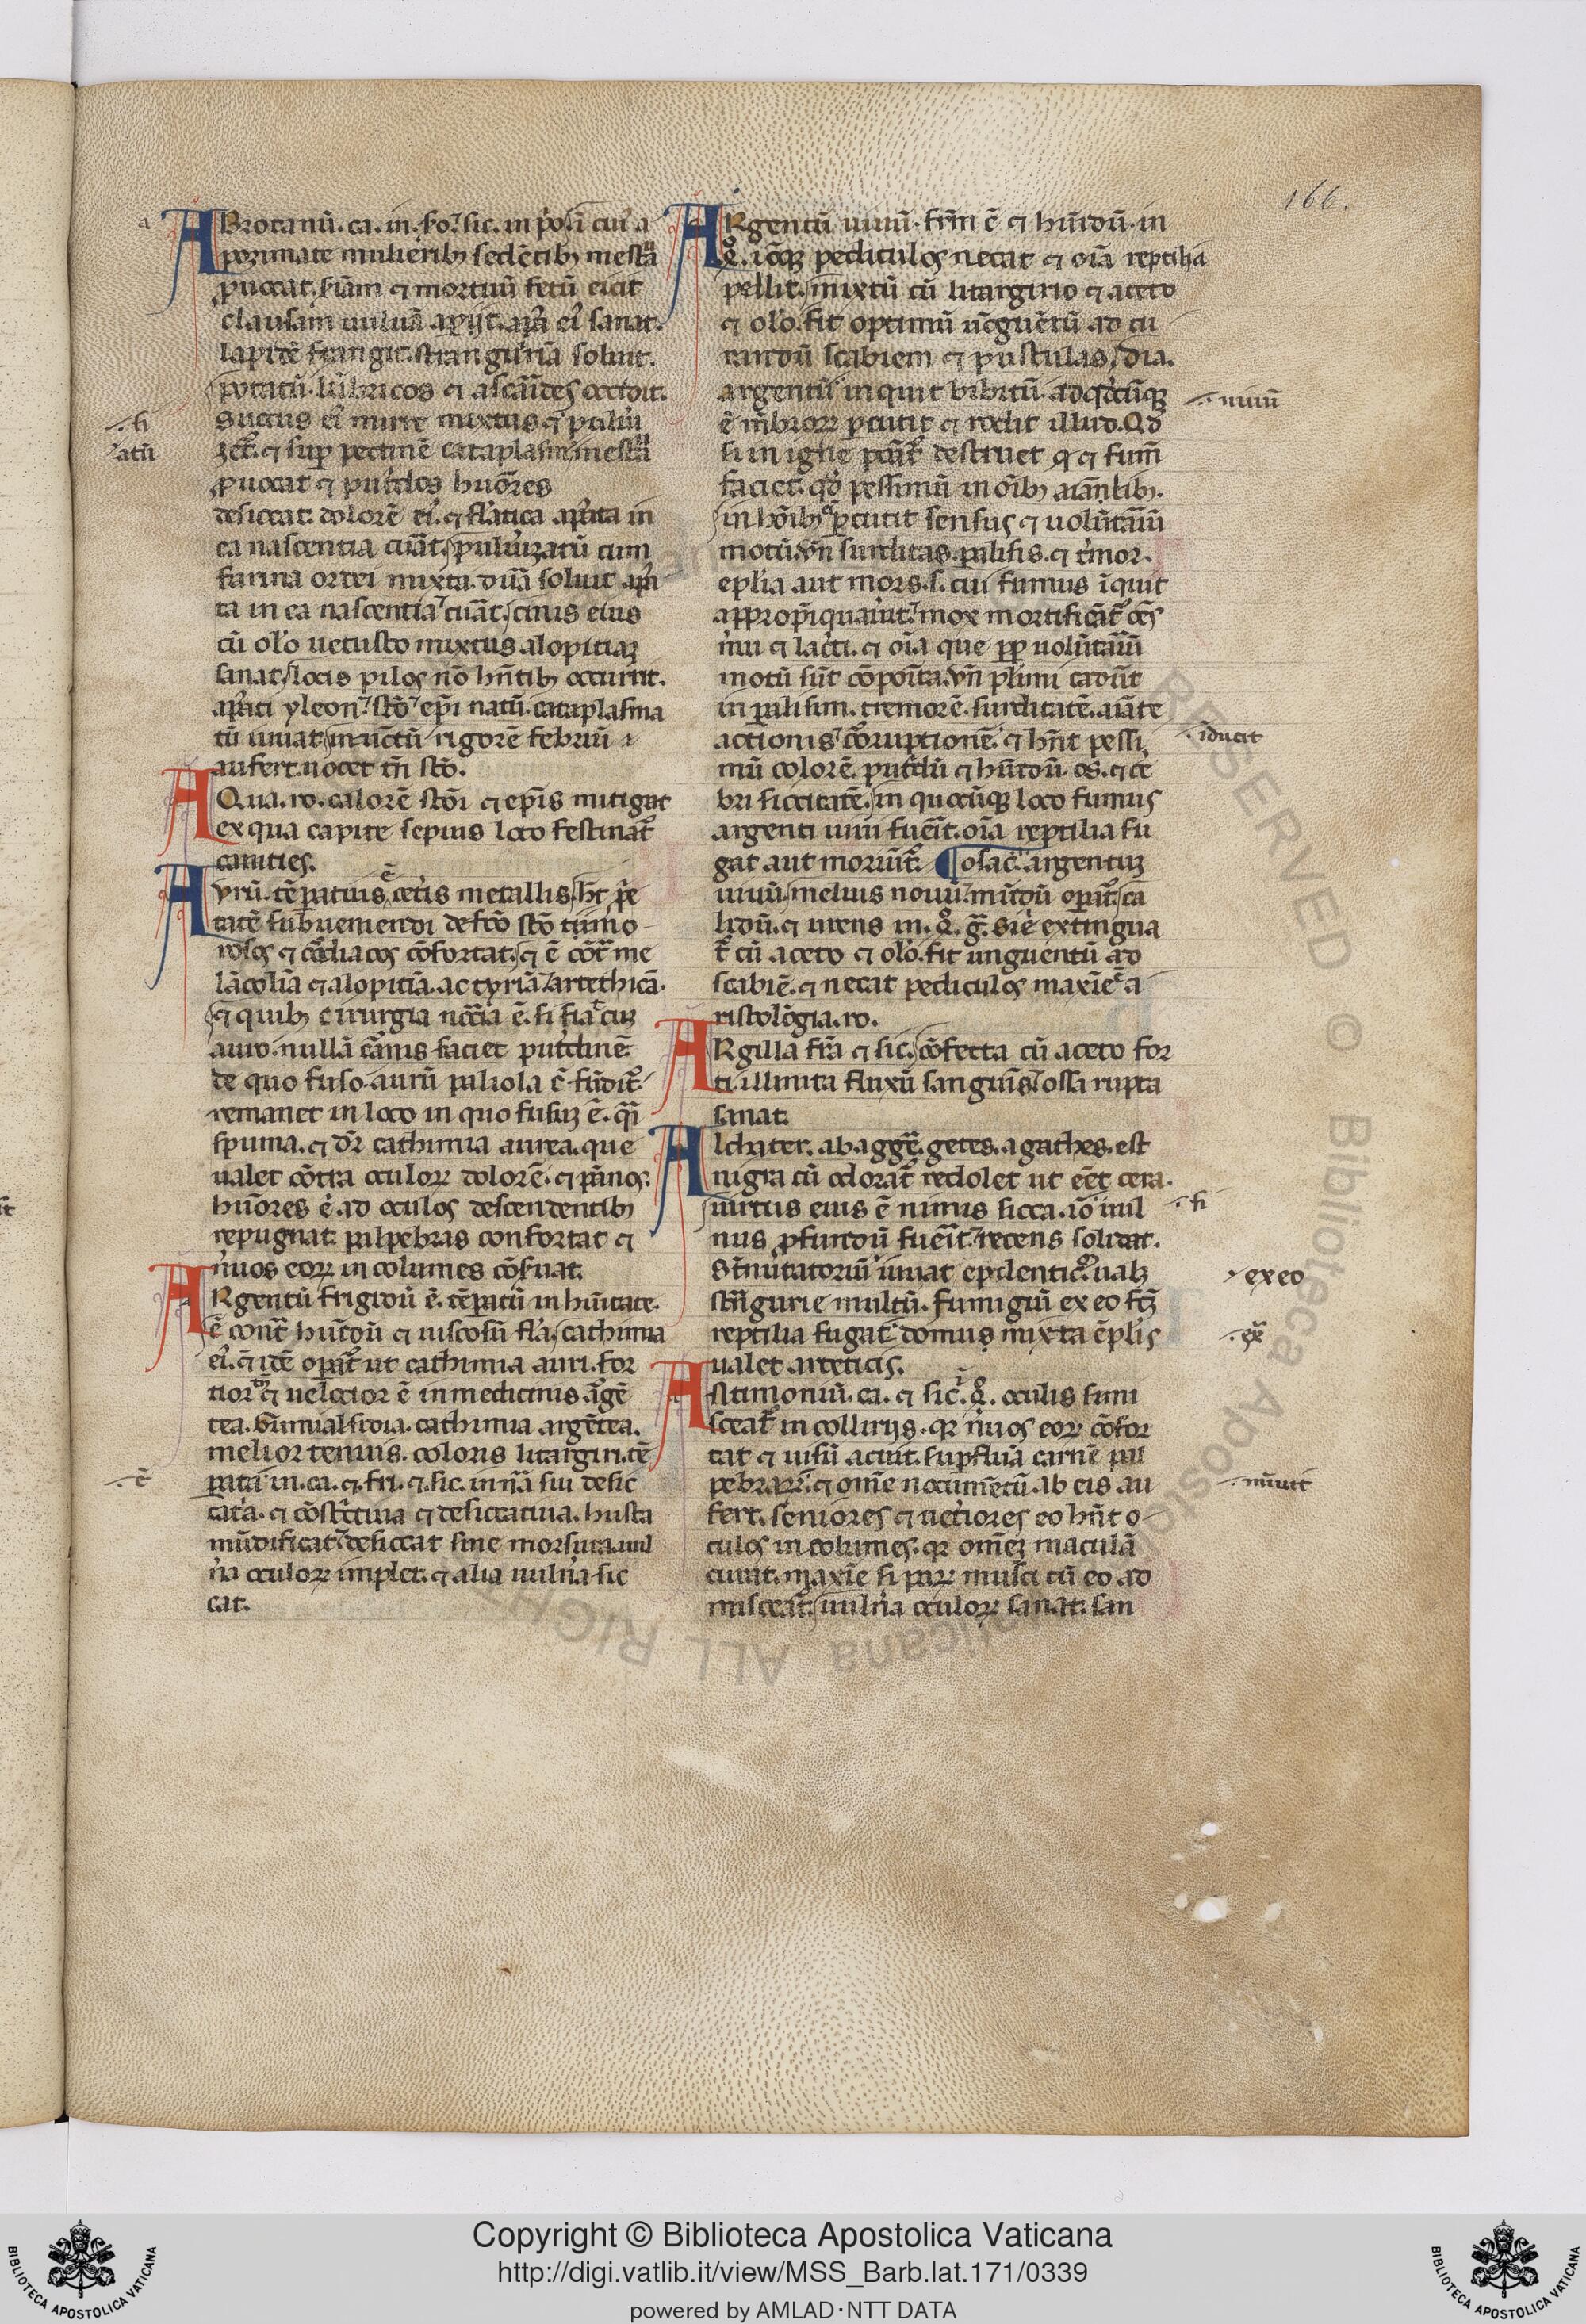 166.
a
ABrotanū. ca. in. fo. sic. in po. i cui a
pozimate mulierib; sedētib; mestrua
ꝓuocat. s̄iam ⁊ mortuū fetū eicit
clausam uuluā apijt. apa ei sanat.
lapidē frangit. stranguriā soluit.
potatū lūbricos ⁊ ascarides occidit.
Succus ei mirre mixtus
⁊ sup pectinē cataplasm mestrua
ꝓuocat ⁊ putridos huōres
desiccat. dolorē ei. ⁊ sciatica aposta in
ea nascentia curat. puluizatū cum
farina ordei mixta. duriā soluit apo
ta in ea nascentia curat. cinis eius
cū oło uetusto mixtus alopitiaz
sanat. locis pilos nō hn̄tib; occurrit.
cataplasma
tū iuuat. inunctū rigorē febriū
aufert. nocet tn̄ sto.
AQua. ro. calorē stōi ⁊ epīs mitigat
ex qua capite sepius loto festinat̄
canities.
AVrū. tēpatius cetis metallis. ht p̄e
tatē subueniendi defcō stō timo
rosos ⁊ cardiacos cōfortat. ⁊ ē cōt̄ me
lācoliā ⁊ alopitiā. ac tyriā. artethicā.
⁊ quib; cirurgia nc̄c̄ia ē. si fiat cuz
auro. nullā carnis faciet putdinē.
de quo fuso. aurū paliola ē fūdit̄.
remanet in loco in quo fusuz ē. q̄si
spuma. ⁊ dr̄ cathimia aurea. que
ualet cōtra oculoꝝ dolorē. ⁊ pānos.
huōres ē. ad oculos descendentib;
repugnat. palpebras confortat ⁊
nuos eoꝝ in columes cōsuat.
ARgentū frigidū ē. tēpatū in hūitate.
ē cont̄ hūidū ⁊ uiscosū fla. cathimia
ei. ē idē opat̄ ut cathimia auri. for
tior ⁊ uelocior ē in medicinis. age
tea. cathimia argētea.
melior tenuis. coloris litargiri. tē
pata in. ca. ⁊. fri. ⁊. sic. in na sui desic
cata. ⁊ cōstrictiua ⁊ desiccatiua. husta
mūdificat. desiccat sine morsura. uul
na oculoꝝ implet. ⁊ alia uulna sic
cat.
ARgentū uiuū. frm ē ⁊ hūidū. in
pediculos necat ⁊ oīa reptilia
pellit. mixtū cū litargirio ⁊ aceto
⁊ oło. fit optimū ūguētū ad cu
randū scabiem ⁊ pustulas. dia.
argentū inquit bibitū. adqdcūqꝫ
ē mēbroꝝ pcutit ⁊ rodit illud. Qd
si in igne ponat̄ destruet ⁊ fumū
faciet. qd pessimū in oīb; aiantib;.
in hoīb; pcutit sensus ⁊ uolūtariū
motū. vn̄ surditas. palisis. ⁊ tmor.
eplia aut mors. s. cui fumus īquit
appropiquauit. mox mortificat̄ oēs
nui ⁊ lacti. ⁊ oīa que pp uolūtariū
motū sūt cōposita. vn̄ plimi cadūt
in palisim. tremorē. surditatē. aiate
actionis coruptionē. ⁊ hn̄t pessi
mū colorē. putdū ⁊ hūidū. os. ⁊ ce
bri siccitatē. in quocūqꝫ loco fumus
argenti uiui fuerit. oīa reptilia fu
gat aut moriūt. ¶ osac. argentuz
uiuū. melius nouū. mūdū opat̄. ca
lidū. ⁊ urens in. 4. g. Sie extingua
t̄ cū aceto ⁊ oło. fit unguentū ad
scabiē. ⁊ necat pediculos maxie a
ristologia. ro.
ARgilla fra ⁊ sic. cōfecta cū aceto for
ti. illinita fluxū sanguīs. ossa rupta
sanat.
Alchiter. ab aggē. getes. agathes. est
nigra cū odorat̄ redolet ut eēt cera.
uirtus eius ē nimis sicca. iō uul
nus ꝓfundū fuerit. recens solidat.
St̄nutatoriū iuuat epilentic. ualꝫ
st̄ngurie multū. fumigiū ex eo fc̄ꝫ
reptilia fugat. domus mixta ēplis
ualet arteticis.
Antimoniū. ca. ⁊ sic. 4. oculis sumi
sceat̄ in collirijs. qr nuos eoꝝ cōfor
tat ⁊ uisū acuit. supfluā carnē pal
pebraꝝ. ⁊ omē nocumētū ab eis au
fert. seniores ⁊ uetiores eo hn̄t o
culos in columes. qr omēz maculā
curat. maxie si paꝝ musci cū eo ad
misceat̄. uulna oculoꝝ sanat. san
si
atū
ē
uiuū
īducit
si
ex eo
mīuit
Copyright © Biblioteca Apostolica Vaticana
http://digi.vatlib.it/view/MSS_Barb.lat.171/0339
powered by AMLAD·NTT DATA
BIBLIOTECA APOSTOLICA VATICANA
BIBLIOTECA APOSTOLICA VATICANA
ALL RIGHTS RESERVED © Biblioteca Apostolica Vaticana